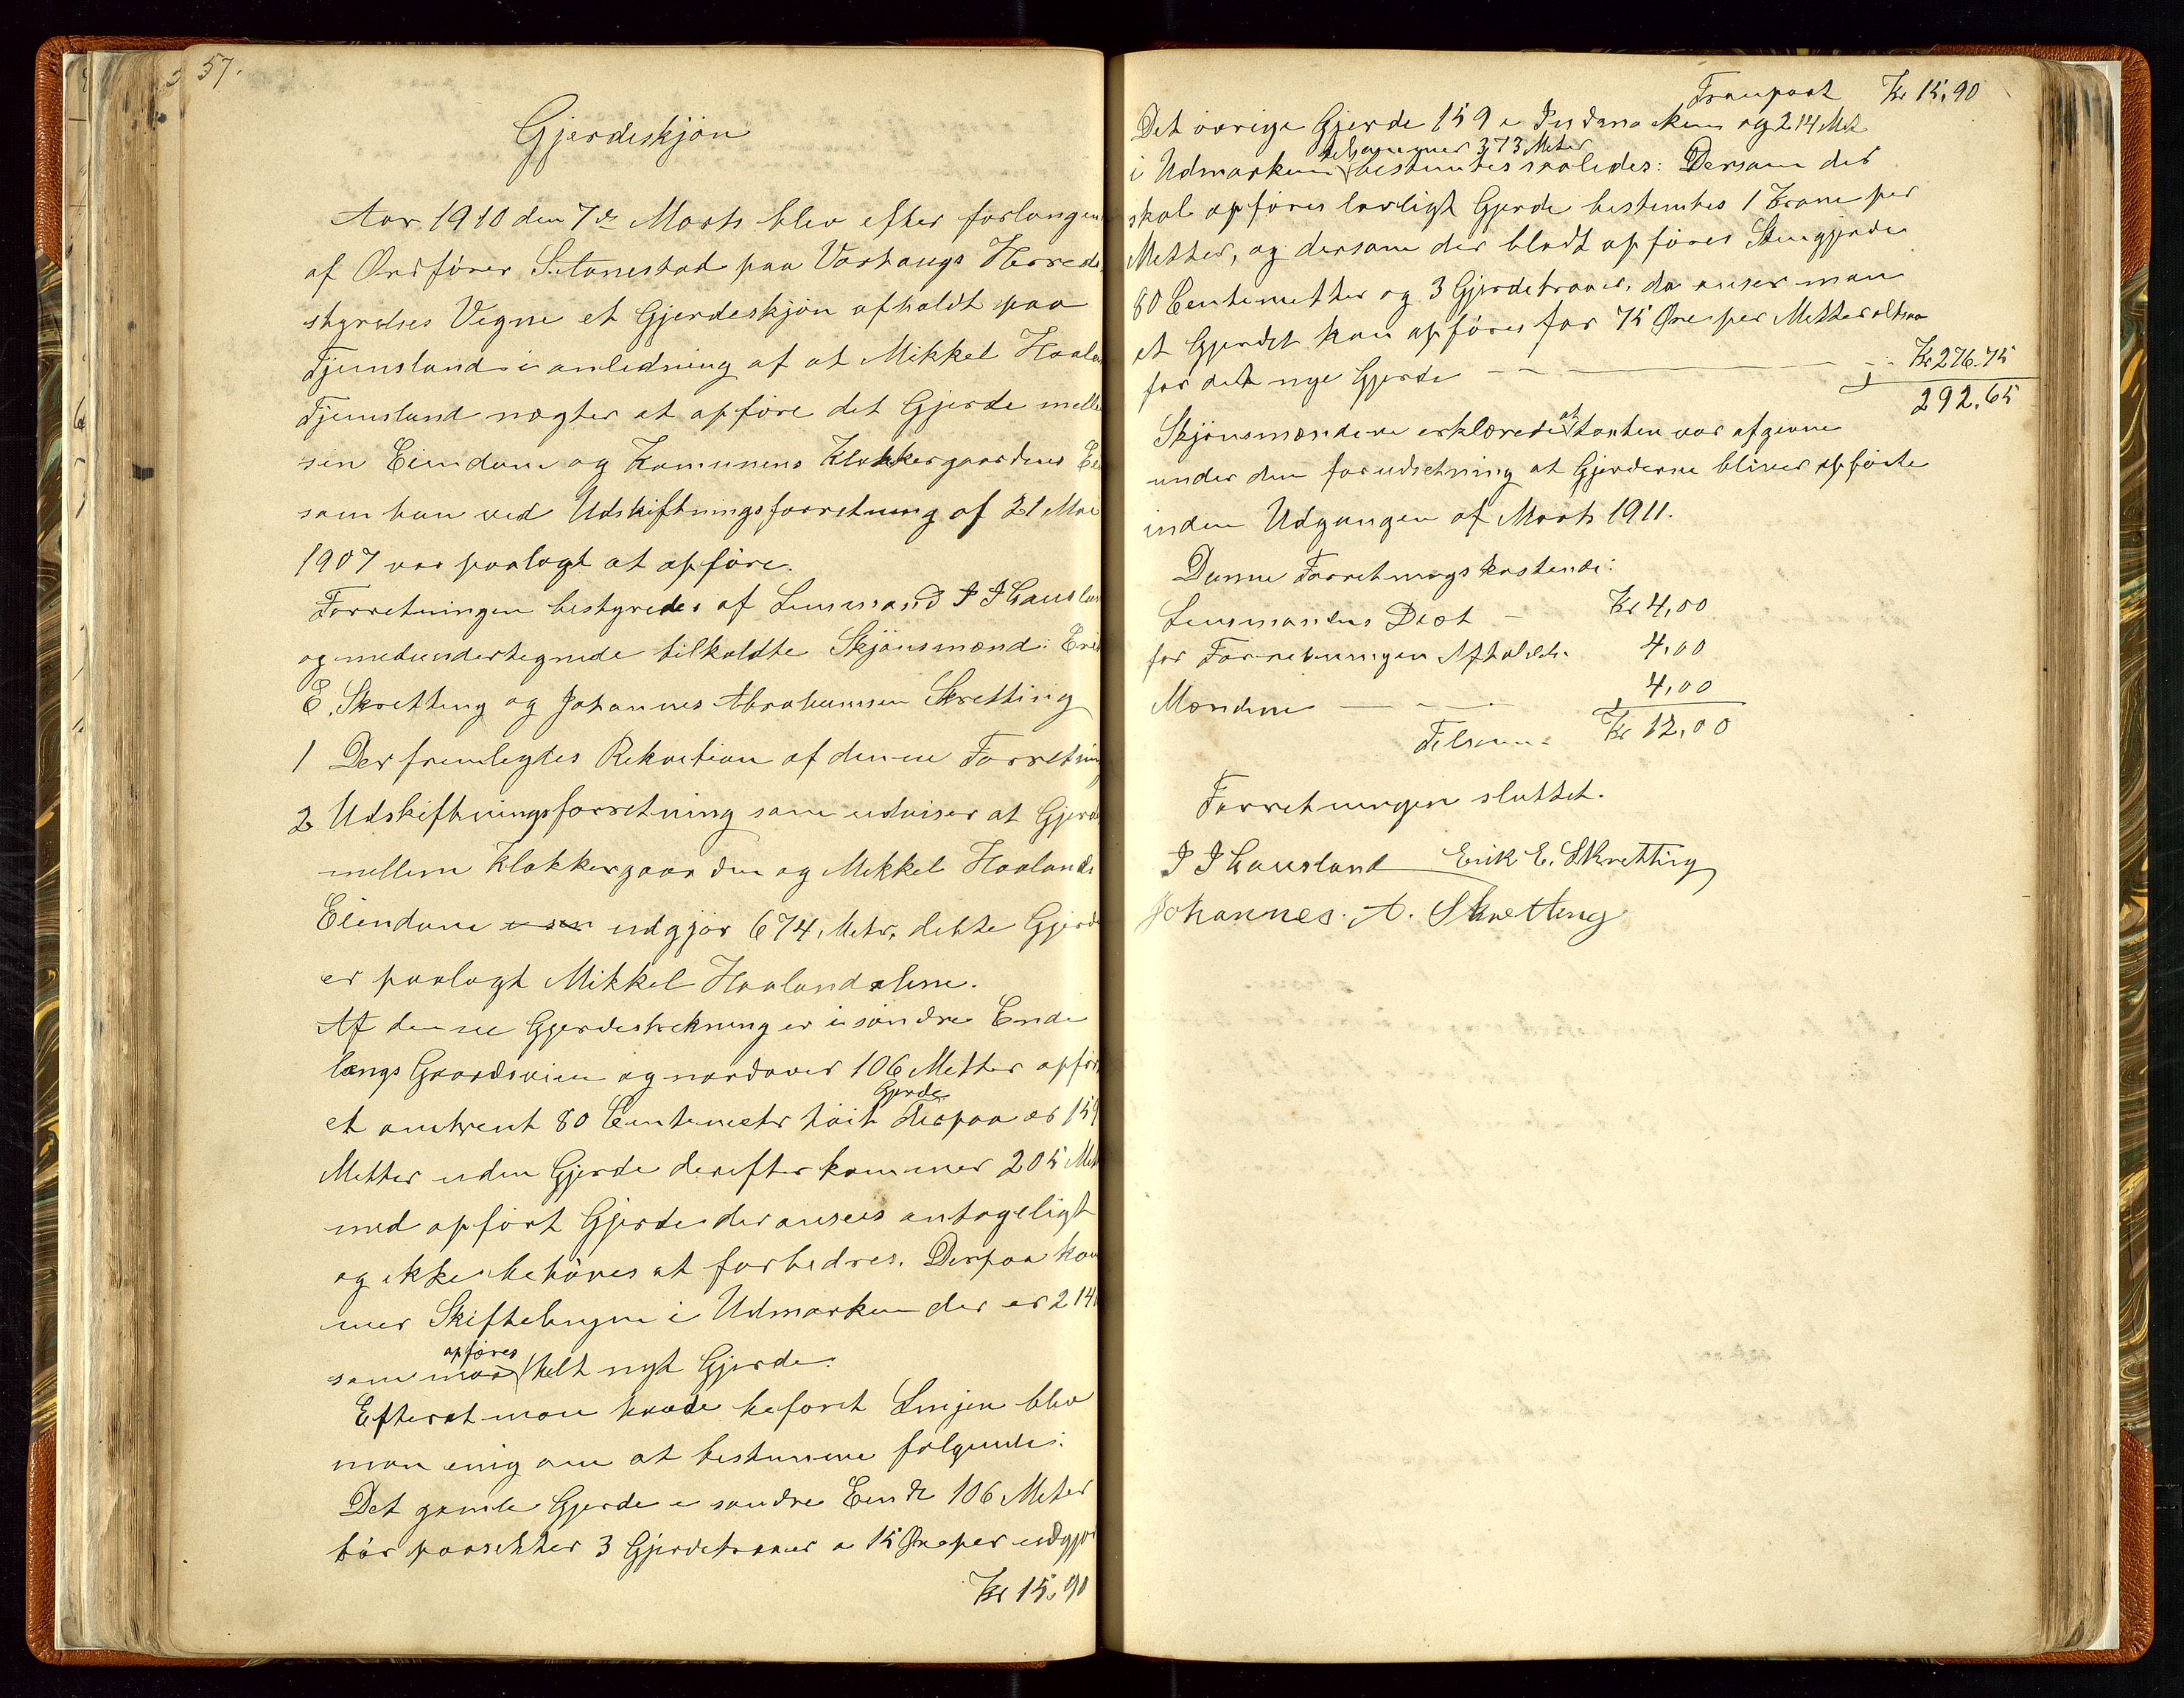 57.
Gjerdeskjøn
Aar 1910 den 7de Marts blev efter forlangen
af Ordfører S. Tunestad paa Varhaugs Herreds
styrelses Vegne et Gjerdeskjøn afholdt paa
Tjemsland i anledning af at Mikkel Haala
Tjemsland nægter at opføre det Gjerde melle
sin Eiendom og Komunens Klokkergaardens Ei
som han ved Udskiftningsforretning af 21 Mai
1907 var paalagt at opføre.
Forretningen bestyredes af Lensmand I I Gausla
og medundertegnede tilkaldte Skjønsmænd: Erik
E. Skretting og Johannes Abrahamsen Skretting
1 Der fremlegtes Rekvition af denne Forretning
2 Udskiftningsforretning som udviser at Gjerde
mellem Klokkergaarden og Mikkel Haalands
Eiendom udgjør 674 Metr, dette Gjerde
er paalagt Mikkel Haaland alene.
Af denne Gjerdestrekning er i søndre Ende
længs Gaardsveien og nordover 106 Metter opfør
et omtrent 80 Centimeter høit Gjerde derpaa er 159
Metter uden Gjerde derefter kommer 205 Met
med opført Gjerde der ansees antageligt
og ikke behøves at forbedres. Derpaa kom
mer Skiftelinjen i Udmarken der er 214
som maa opføres helt nyt Gjerde.
Efterat man havde befaret Linjen blev
man enig om at bestemme følgende:
Det gamle Gjerde i søndre Ende 106 Meter
bør paasetter 3 Gjerdetraaer a 15 Øre per udgjør
Kr 15.90
Transport Kr 15,90
Det øvrige Gjerde 159 i Indmarken og 214 Met
i Udmarken tilsammer 373 Meter bestemtes saaledes: Dersom det
skal opføres lovligt Gjerde bestemtes 1 Krone per
Metter, og dersom der bladt opføres Stengjerde
80 Centimetter og 3 Gjerdetraaer, da anser man
at Gjerdet kan opføres for 75 Øre per Metter altsaa
for det nye Gjerde — — Kr 276.75
292,65
Skjønsmændene erklærede at taxten var afgivne
under den forudsetning at Gjerderne bliver opførte
inden Udgangen af Marts 1911.
Denne Forretnings kostende:
Lensmandens Diæt - Kr 4,00
for Forretningen Afholdelse 4,00
Mændene — — 4,00
Tilsam: Kr 12,00
Forretningen sluttet.
I I Gausland Erik E. Skretting
Johannes. A. Skretting